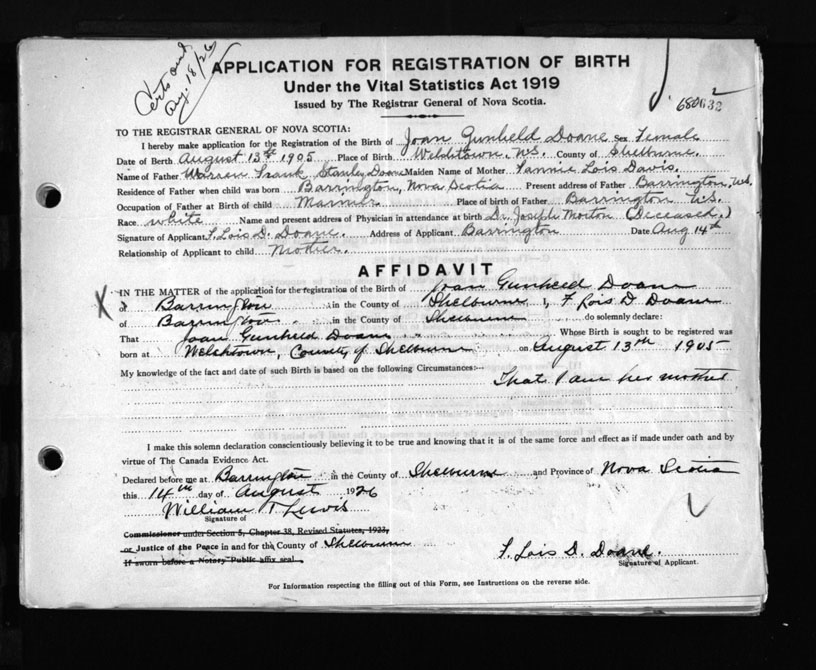 Certs out
Aug. 18/26
APPLICATION FOR REGISTRATION OF BIRTH
Under the Vital Statistics Act 1919
Issued by The Registrar General of Nova Scotia.
2
680632
TO THE REGISTRAR GENERAL OF NOVA SCOTIA:
I hereby make application for the Registration of the Birth of Joan Gunheld Doane Sex Female
Date of Birth August 13th 1905 Place of Birth Welchtown, N.S. County of Shelburne.
Name of Father Warren Frank Stanley Doane Maiden Name of Mother Fannie Lois Davis.
Residence of Father when child was born Barrington, Nova Scotia Present address of Father Barrington, N.S.
Occupation of Father at Birth of child Mariner Place of birth of Father Barrington N.S.
Race white Name and present address of Physician in attendance at birth Dr. Joseph Morton (Deceased.)
Signature of Applicant F. Lois D. Doane. Address of Applicant Barrington Date Aug 14th
Relationship of Applicant to child Mother.
AFFIDAVIT
X IN THE MATTER of the application for the registration of the Birth of Joan Gunheld Doane
of Barrington in the County of Shelburne I, F Lois D Doane
of Barrington in the County of Shelburne do solemnly declare:
That Joan Gunheld Doane Whose Birth is sought to be registered was
born at Welchtown, County of Shelburne on August 13th 1905
My knowledge of the fact and date of such Birth is based on the following Circumstances:—
That I am her mother
I make this solemn declaration conscientiously believing it to be true and knowing that it is of the same force and effect as if made under oath and by
virtue of The Canada Evidence Act.
Declared before me at Barrington in the County of Shelburne and Province of Nova Scotia
this 14th day of August 1926
William T Lewis
Signature of
Commissioner under Section 5, Chapter 38, Revised Statutes, 1923,
or Justice of the Peace in and for the County of Shelburne
If sworn before a Notary Public affix seal
F. Lois D. Doane.
Signature of Applicant.
For Information respecting the filling out of this Form, see Instructions on the reverse side.